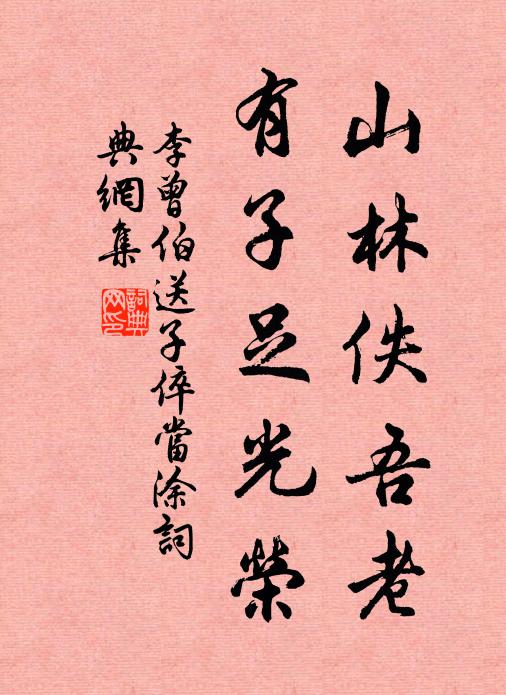 山林佚吾老
有子足光榮
李曾伯送子倅當涂詞
典網集
詞典網印